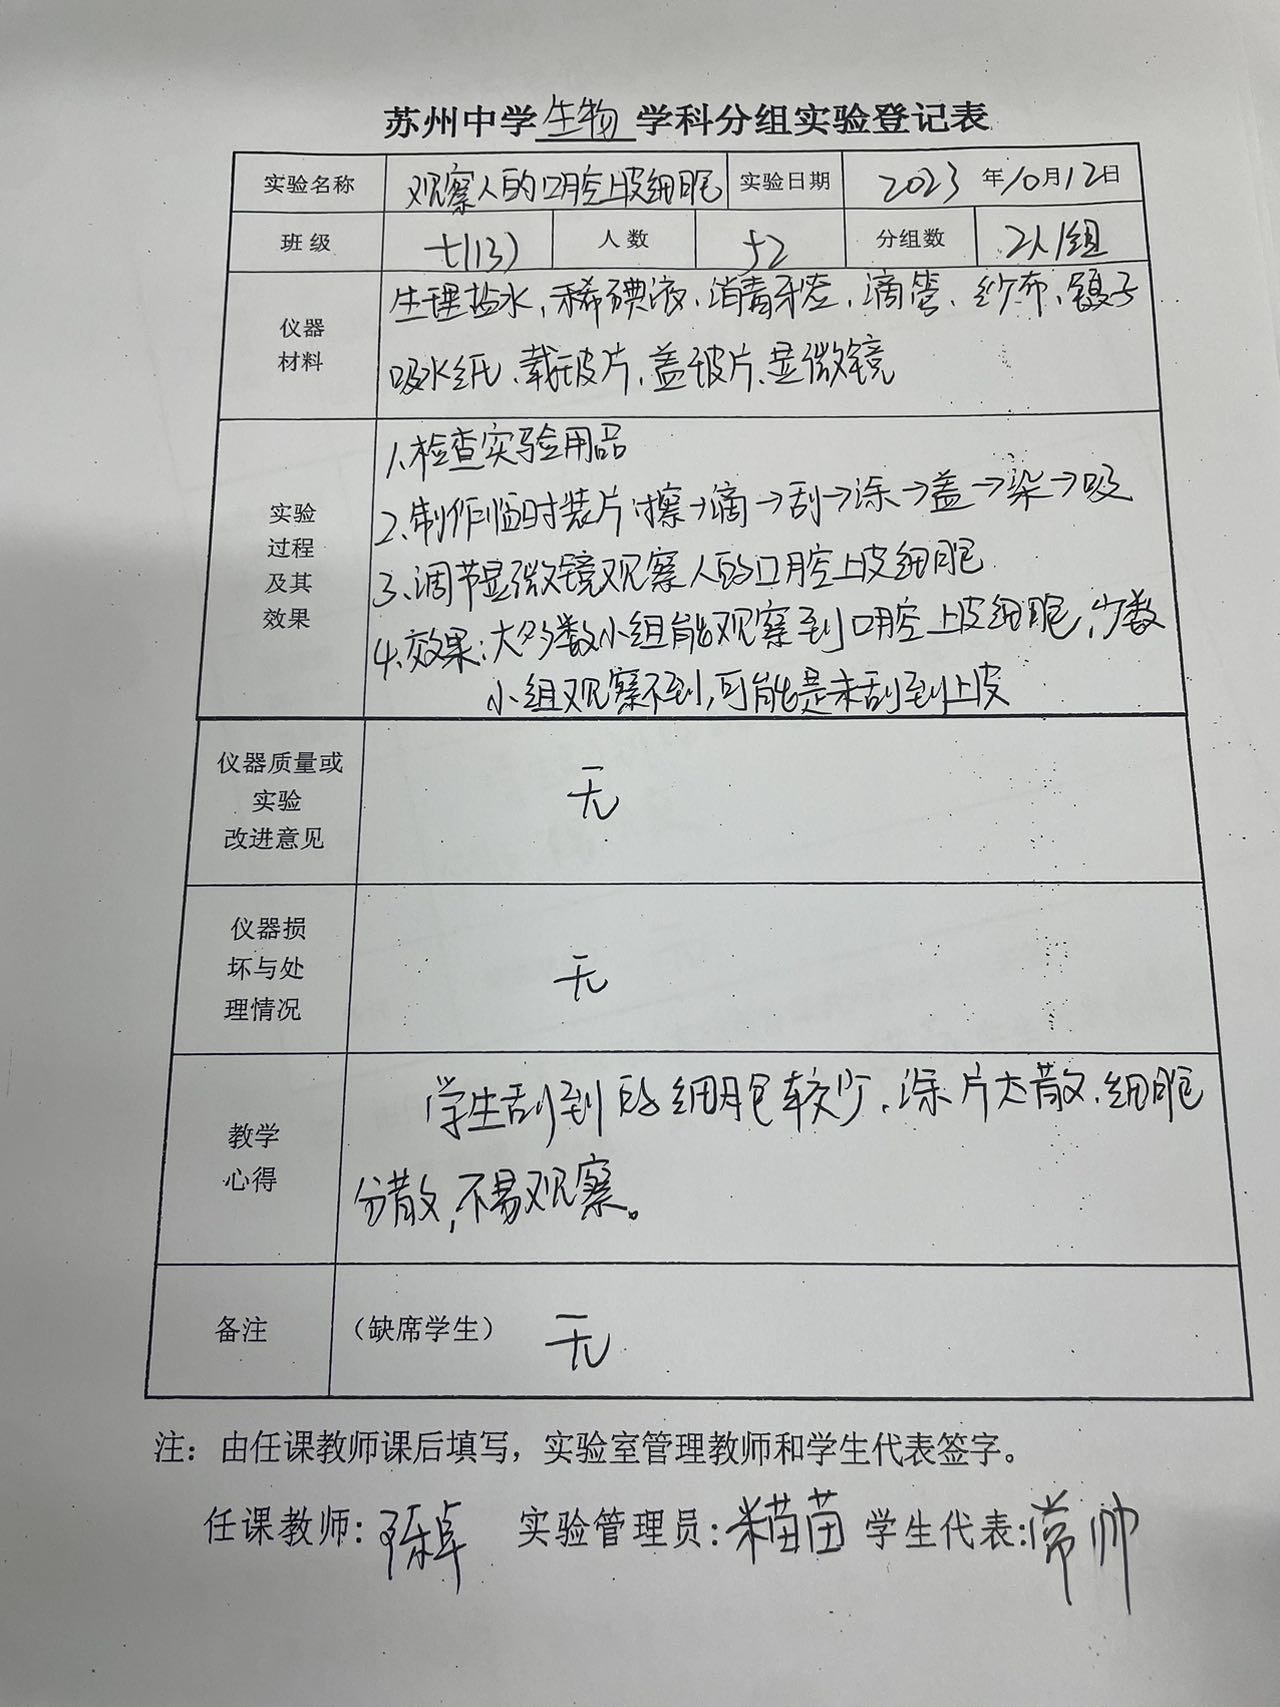 苏州中学生物学科分组实验登记表
实验名称 观察人的口腔上皮细胞 实验日期 2023年10月12日
班级 七(13) 人数 52 分组数 2人1组
仪器
材料
生理盐水、稀碘液、消毒牙签、滴管、纱布、镊子
吸水纸、载玻片、盖玻片、显微镜
实验
过程
及其
效果
1、检查实验用品
2、制作临时装片:擦→滴→刮→涂→盖→染→吸
3、调节显微镜观察人的口腔上皮细胞
4、效果:大多数小组能观察到口腔上皮细胞,少数
小组观察不到,可能是未刮到上皮
仪器质量或
实验
改进意见
无
仪器损
坏与处
理情况
无
教学
心得
学生刮到的细胞较少,涂片太散,细胞
分散,不易观察。
备注 (缺席学生) 无
注:由任课教师课后填写,实验室管理教师和学生代表签字。
任课教师: 实验管理员: 苗 学生代表:常帅